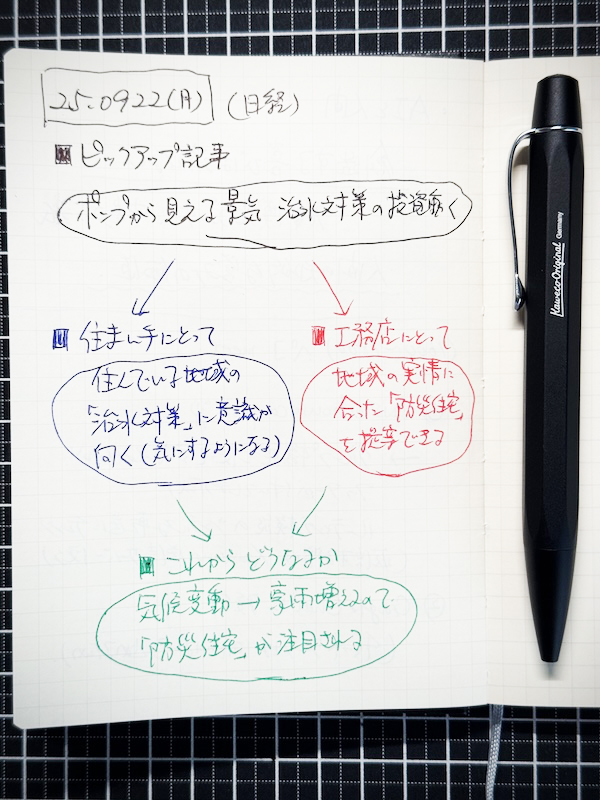 25.0922(月) (日経)
■ピックアップ記事
ポンプから見える景気 治水対策の投資動く
■住まい手にとって
住んでいる地域の
「治水対策」に意識が
向く(気にするようになる)
■工務店にとって
地域の実情に
合った「防災住宅」
を提案できる
■これからどうなるか
気候変動→豪雨増えるので
「防災住宅」が注目される
Kaweco-Original Germany